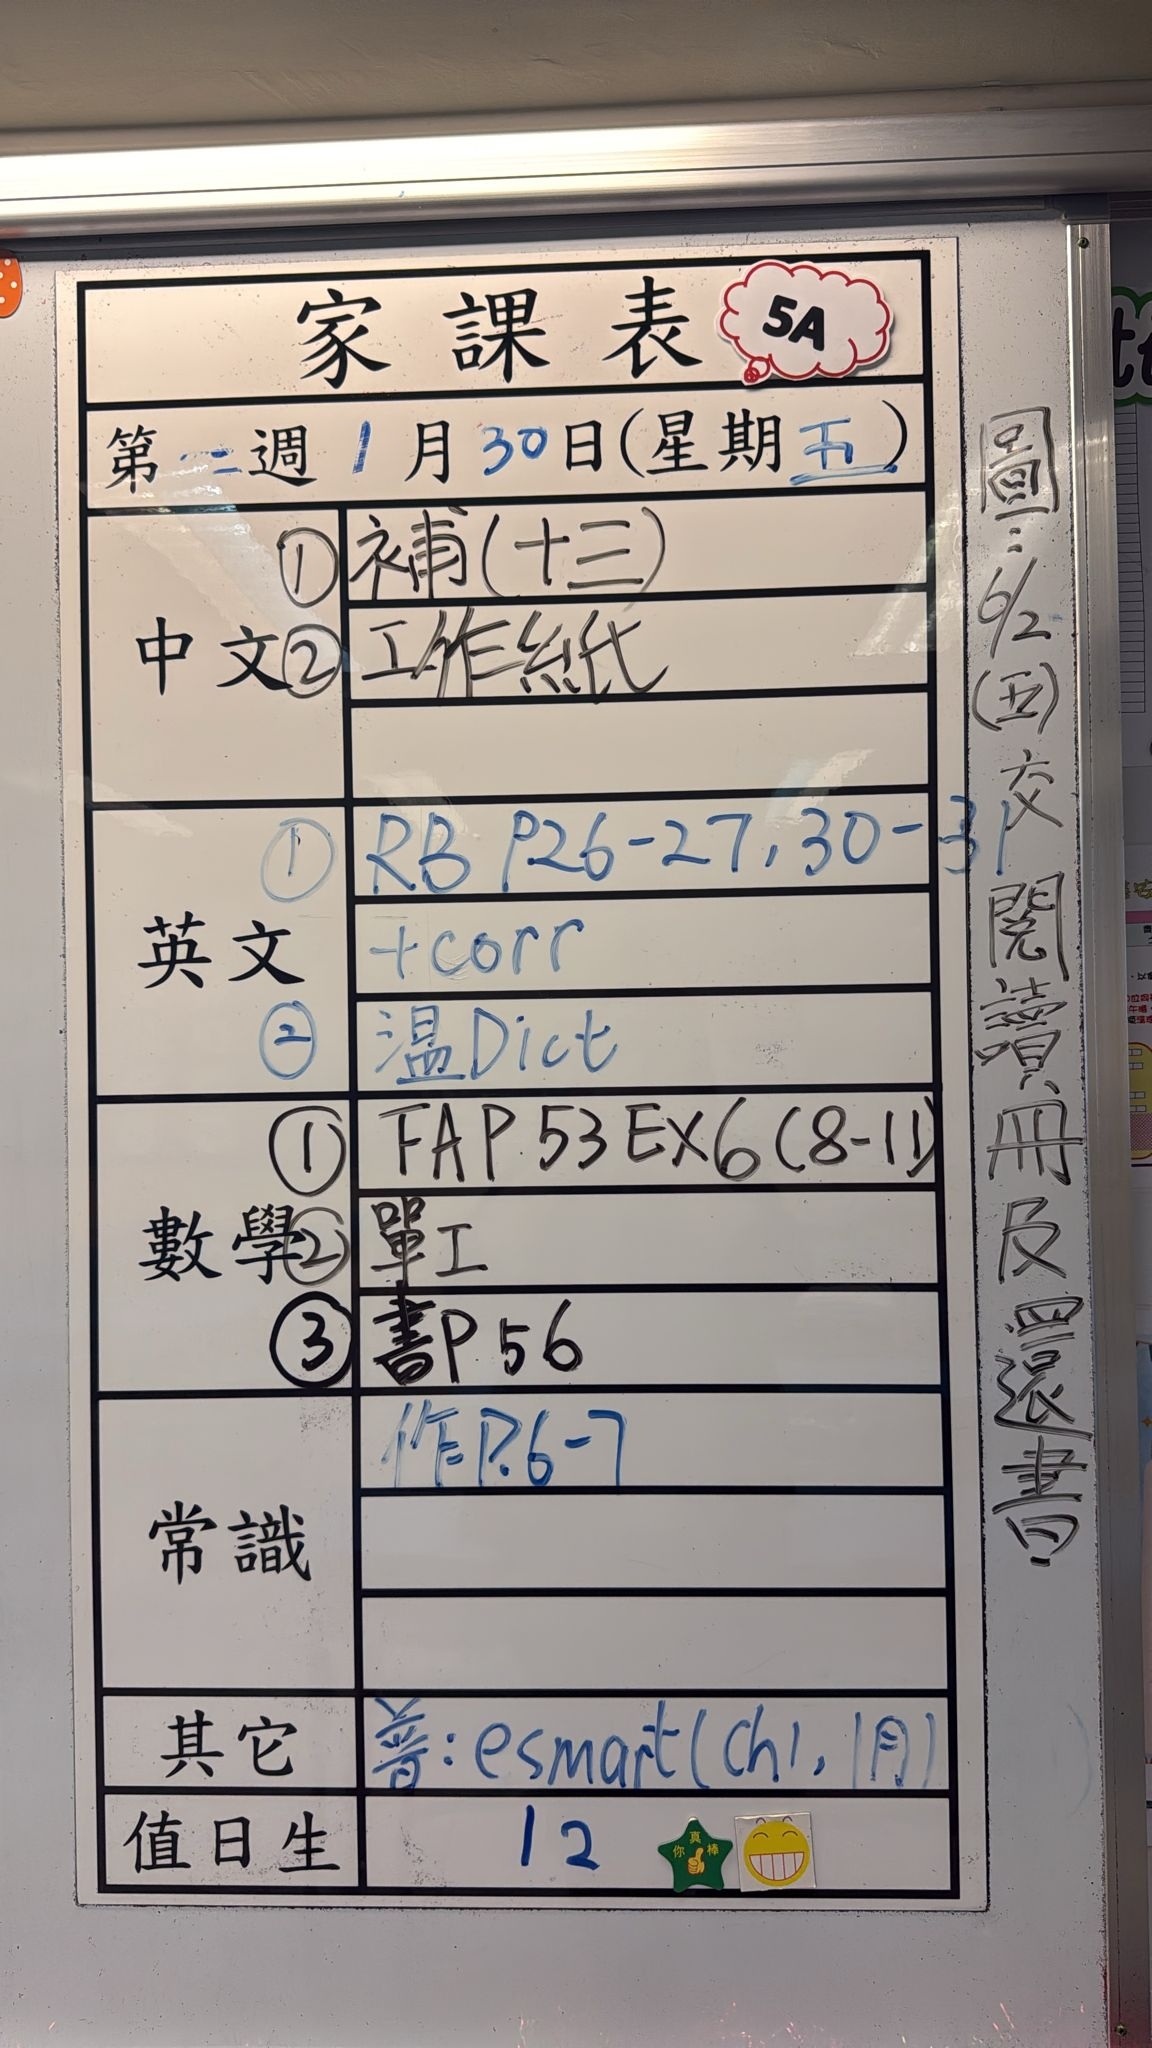 家課表 5A
第二週 1月30日(星期五)
中文
① 補(十三)
② 工作紙
英文
① RB P26-27, 30-31
+corr
② 溫Dict
數學
① FA P53 EX6 (8-11)
② 單工
③ 書P56
常識
作P.6-7
其它
普: esmart(ch1, 1月)
值日生
12
你真棒
圖: 6/2(五)交閱讀冊及還書